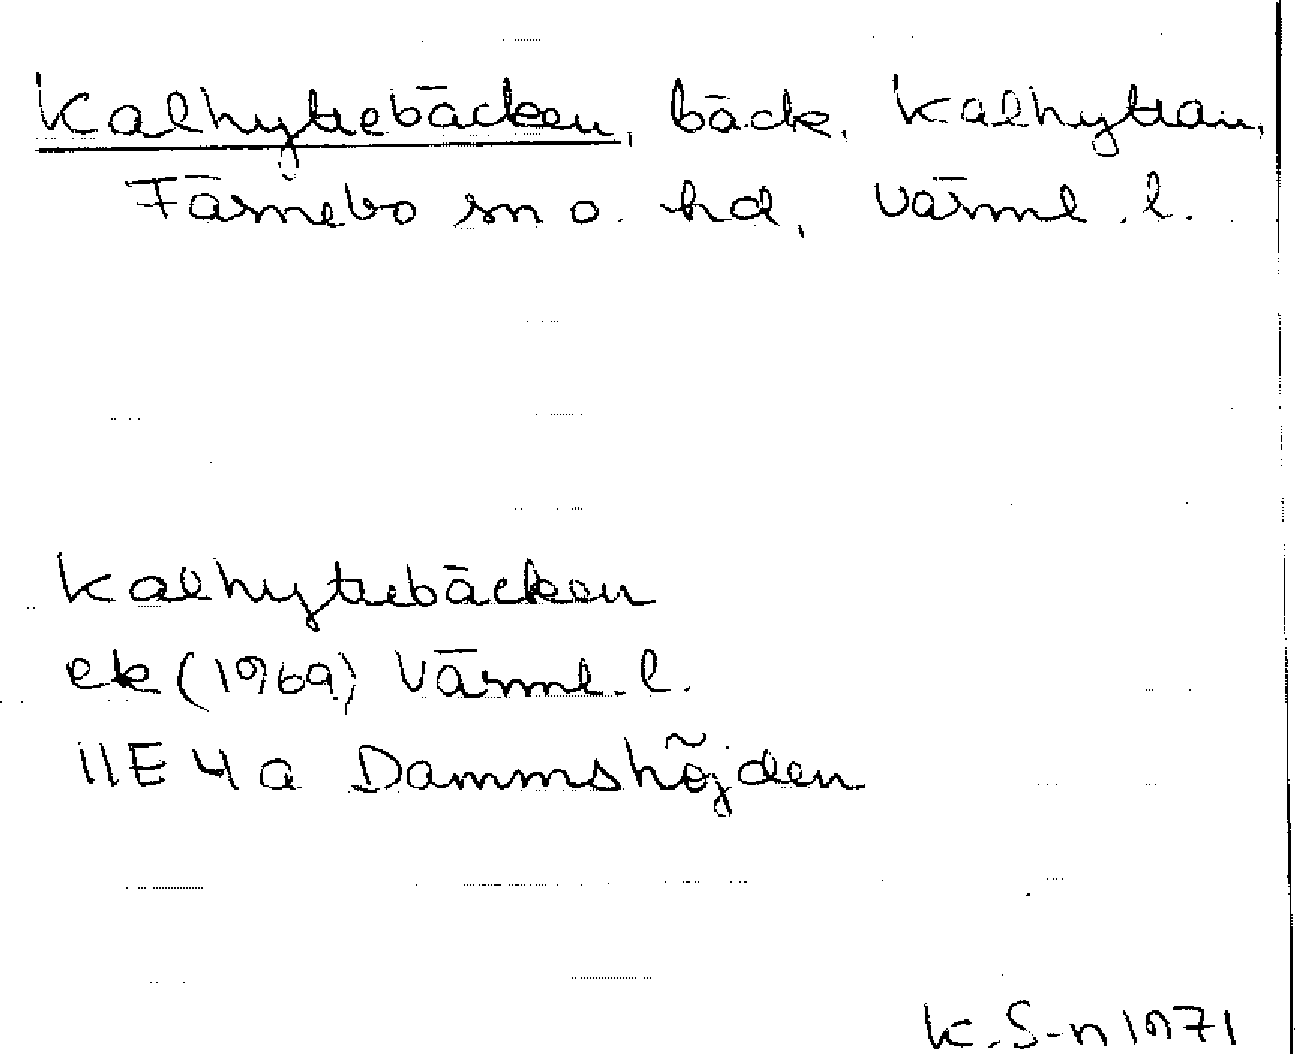 Kalhyttebäcken, bäck, Kalhyttan,
Färnebo sn o. hd, Värml. l.
Kalhyttebäcken
ek (1969) Värml. l.
11E 4a Dammshöjden
K. S-n 1971